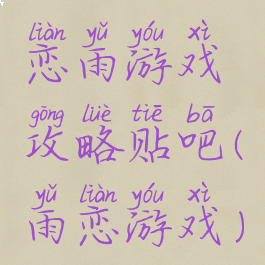 liàn yǔ yóu xì
恋雨游戏
gōng lüè tiē bā
攻略贴吧(
yǔ liàn yóu xì
雨恋游戏)